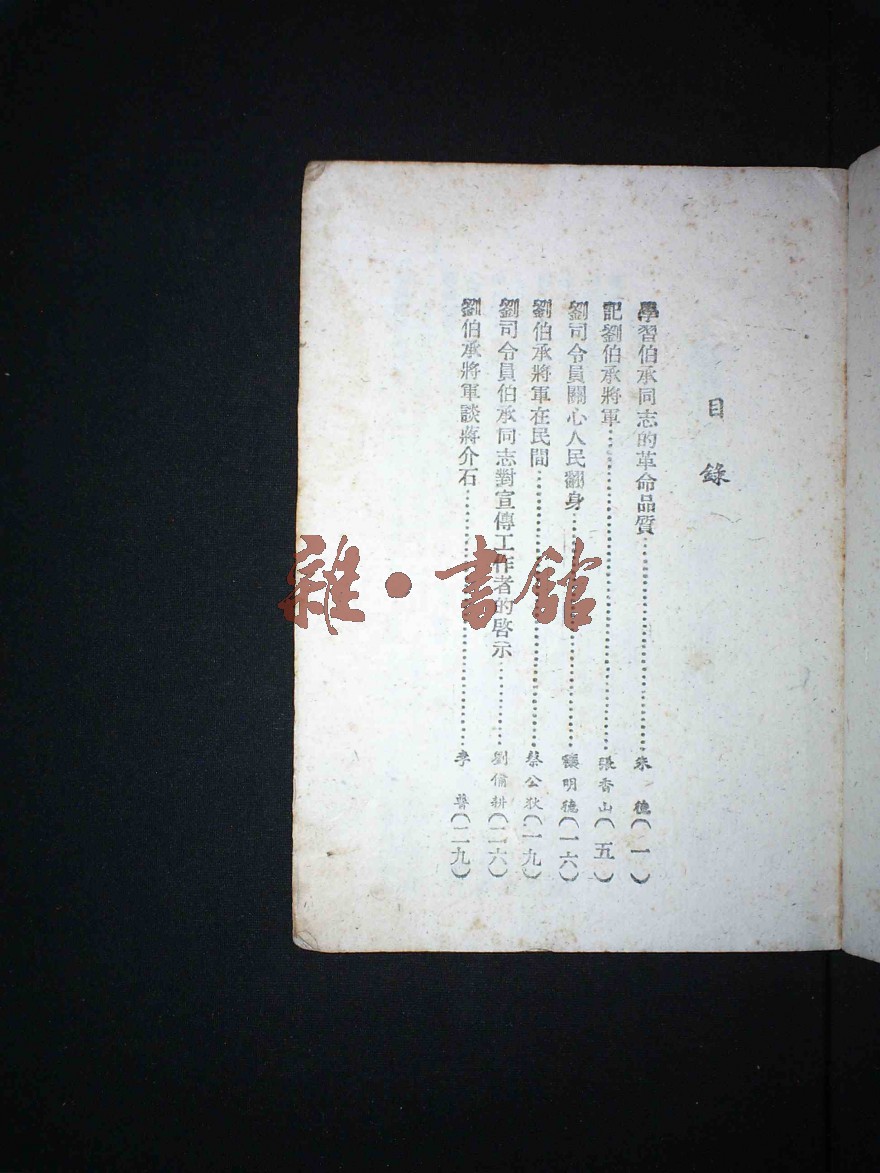 目錄
學習伯承同志的革命品質…………朱德(一)
記劉伯承將軍…………張香山(五)
劉司令員關心人民翻身…………明德(一六)
劉伯承將軍在民間…………蔡公狄(一九)
劉司令員伯承同志對宣傳工作者的啓示…………劉備耕(二六)
劉伯承將軍談蔣介石…………李普(二九)
雜·書館